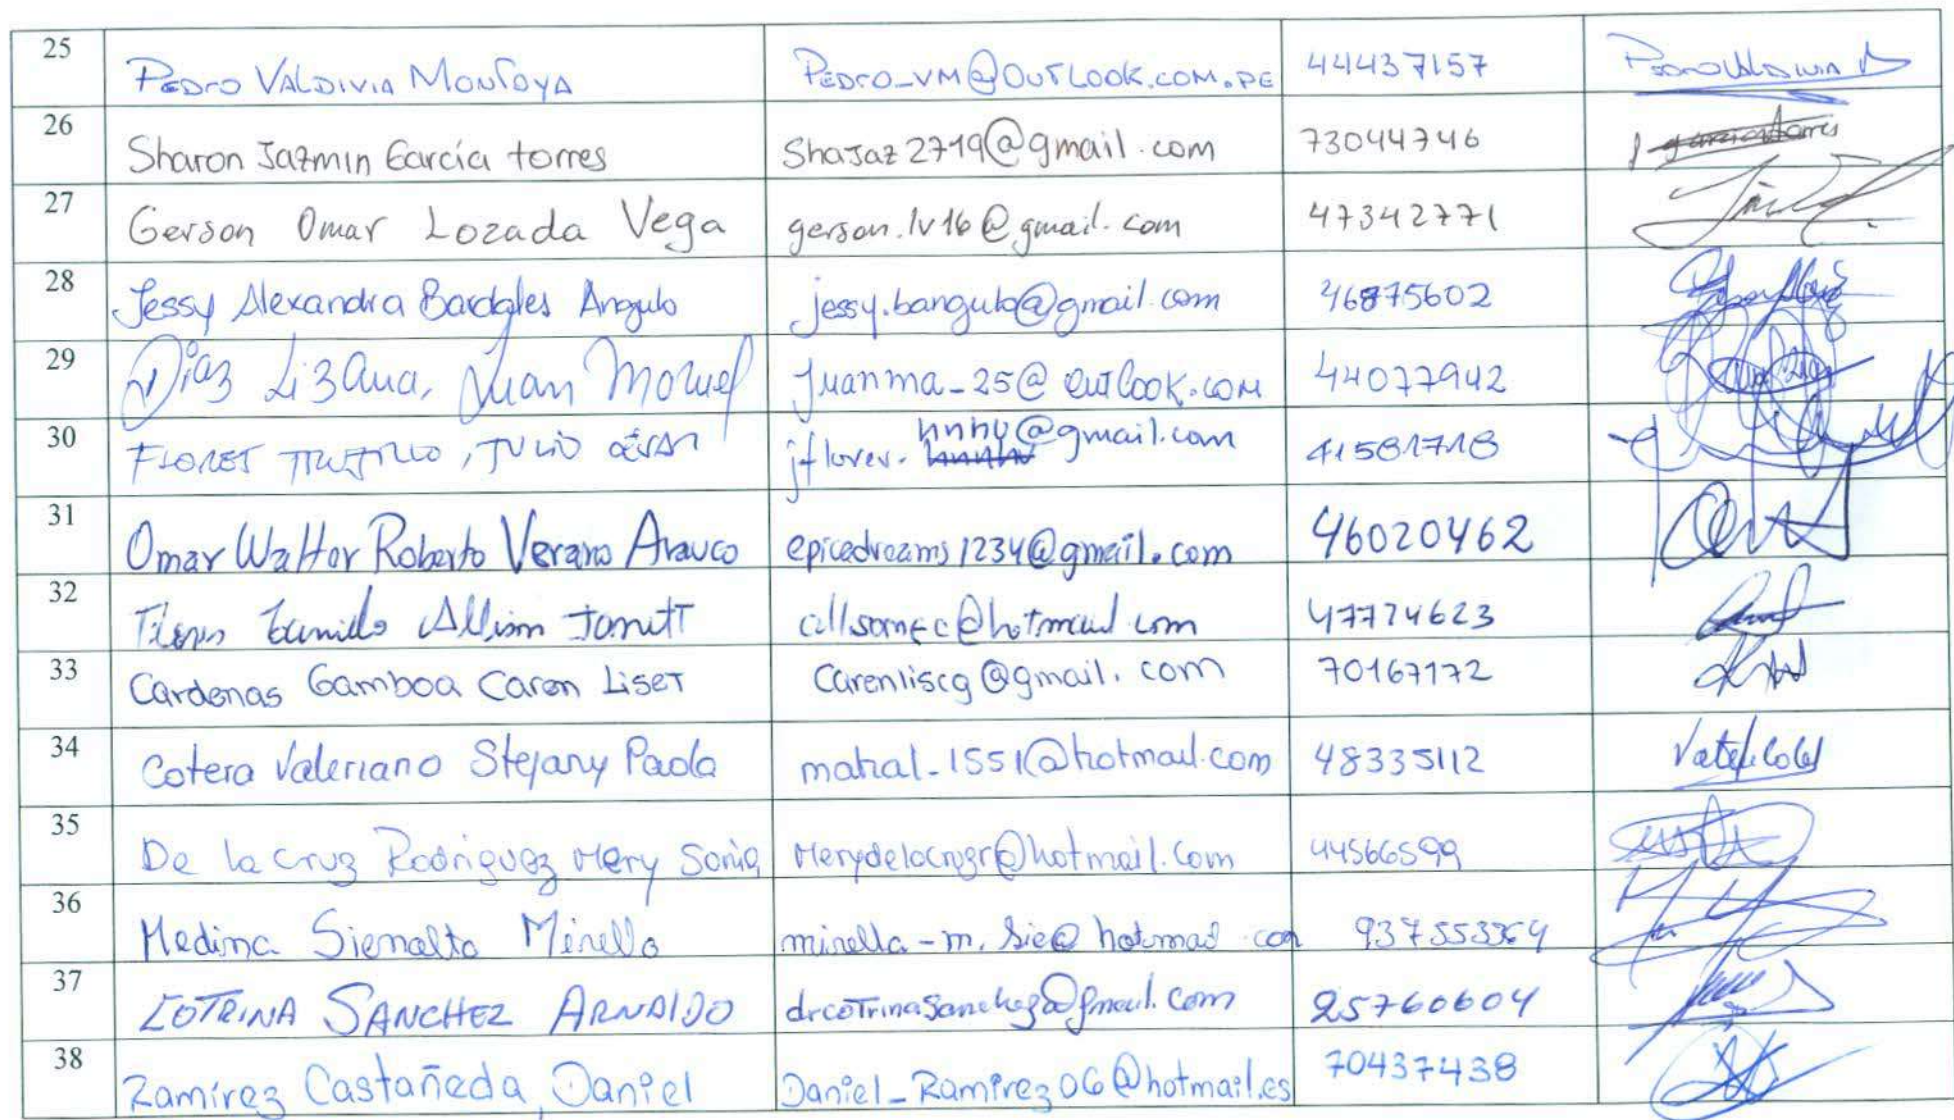 25 PEDRO VALDIVIA MONTOYA PEDRO_VM@OUTLOOK.COM.PE 44437157 PEDRO VALDIVIA
26 Sharon Jazmin Garcia torres ShaJaz2719@gmail.com 73044746
27 Gerson Omar Lozada Vega gerson.lv16@gmail.com 47342771
28 Jessy Alexandra Bardales Angulo jessy.bangulo@gmail.com 46875602
29 Díaz Lizana, Juan Manuel Juanma_25@outlook.com 44077942
30 FLORES TRUJILLO, JULIO CÉSAR jflores. hnhu@gmail.com 41581718
31 Omar Walter Roberto Verano Arauco epicedreams1234@gmail.com 46020462
32 Allison Janett 47724623
33 Cardenas Gamboa Caren Liset Carenliscg@gmail.com 70167172
34 Cotera Valeriano Stefany Paola matral_1551@hotmail.com 48335112
35 De la Cruz Rodriguez Mery Sonia Merydelacruzr@hotmail.com 44566599
36 Medina Mirella mirella-m.sie@hotmail.com 937553364
37 COTRINA SANCHEZ ARNALDO drcotrinasanchez@gmail.com 25760604
38 Ramírez Castañeda, Daniel Daniel_Ramirez06@hotmail.es 70437438